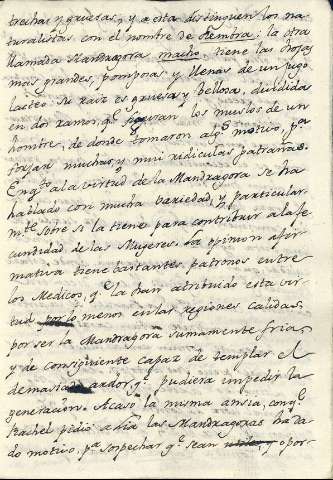 trechas y gruesas, y a esta distinguen los na-
turalistas con el nombre de Hembra: la otra
llamada Mandragora macho, tiene las hojas
mas grandes, pomposas y llenas de un jugo
lacteo. Su raiz es gruesa y bellosa, dividida
en dos ramos, qe los muslos de un
hombre, de donde tomaron algs motivo, pa
forjar muchas, y mui ridiculas patrañas.
Enqto a la virtud de la Mandragora se ha
hablado con mucha variedad, y particular
mte sobre si la tiene para contribuir a la fe
cundidad de las Mugeres. La opinion afir
mativa tiene bastantes patronos entre
los Medicos, qe la han atribuido esta vir-
tud por lo menos en las regiones calidas,
por ser la Mandragora sumamente fria,
y de consiguiente capaz de templar el
demasiado ardor, qe pudiera impedir la
generacion. Acaso la misma ansia, conqe
Rachel pidio a Lia las Mandragoras ha da-
do motivo, pa sospechar qe sean y opor-